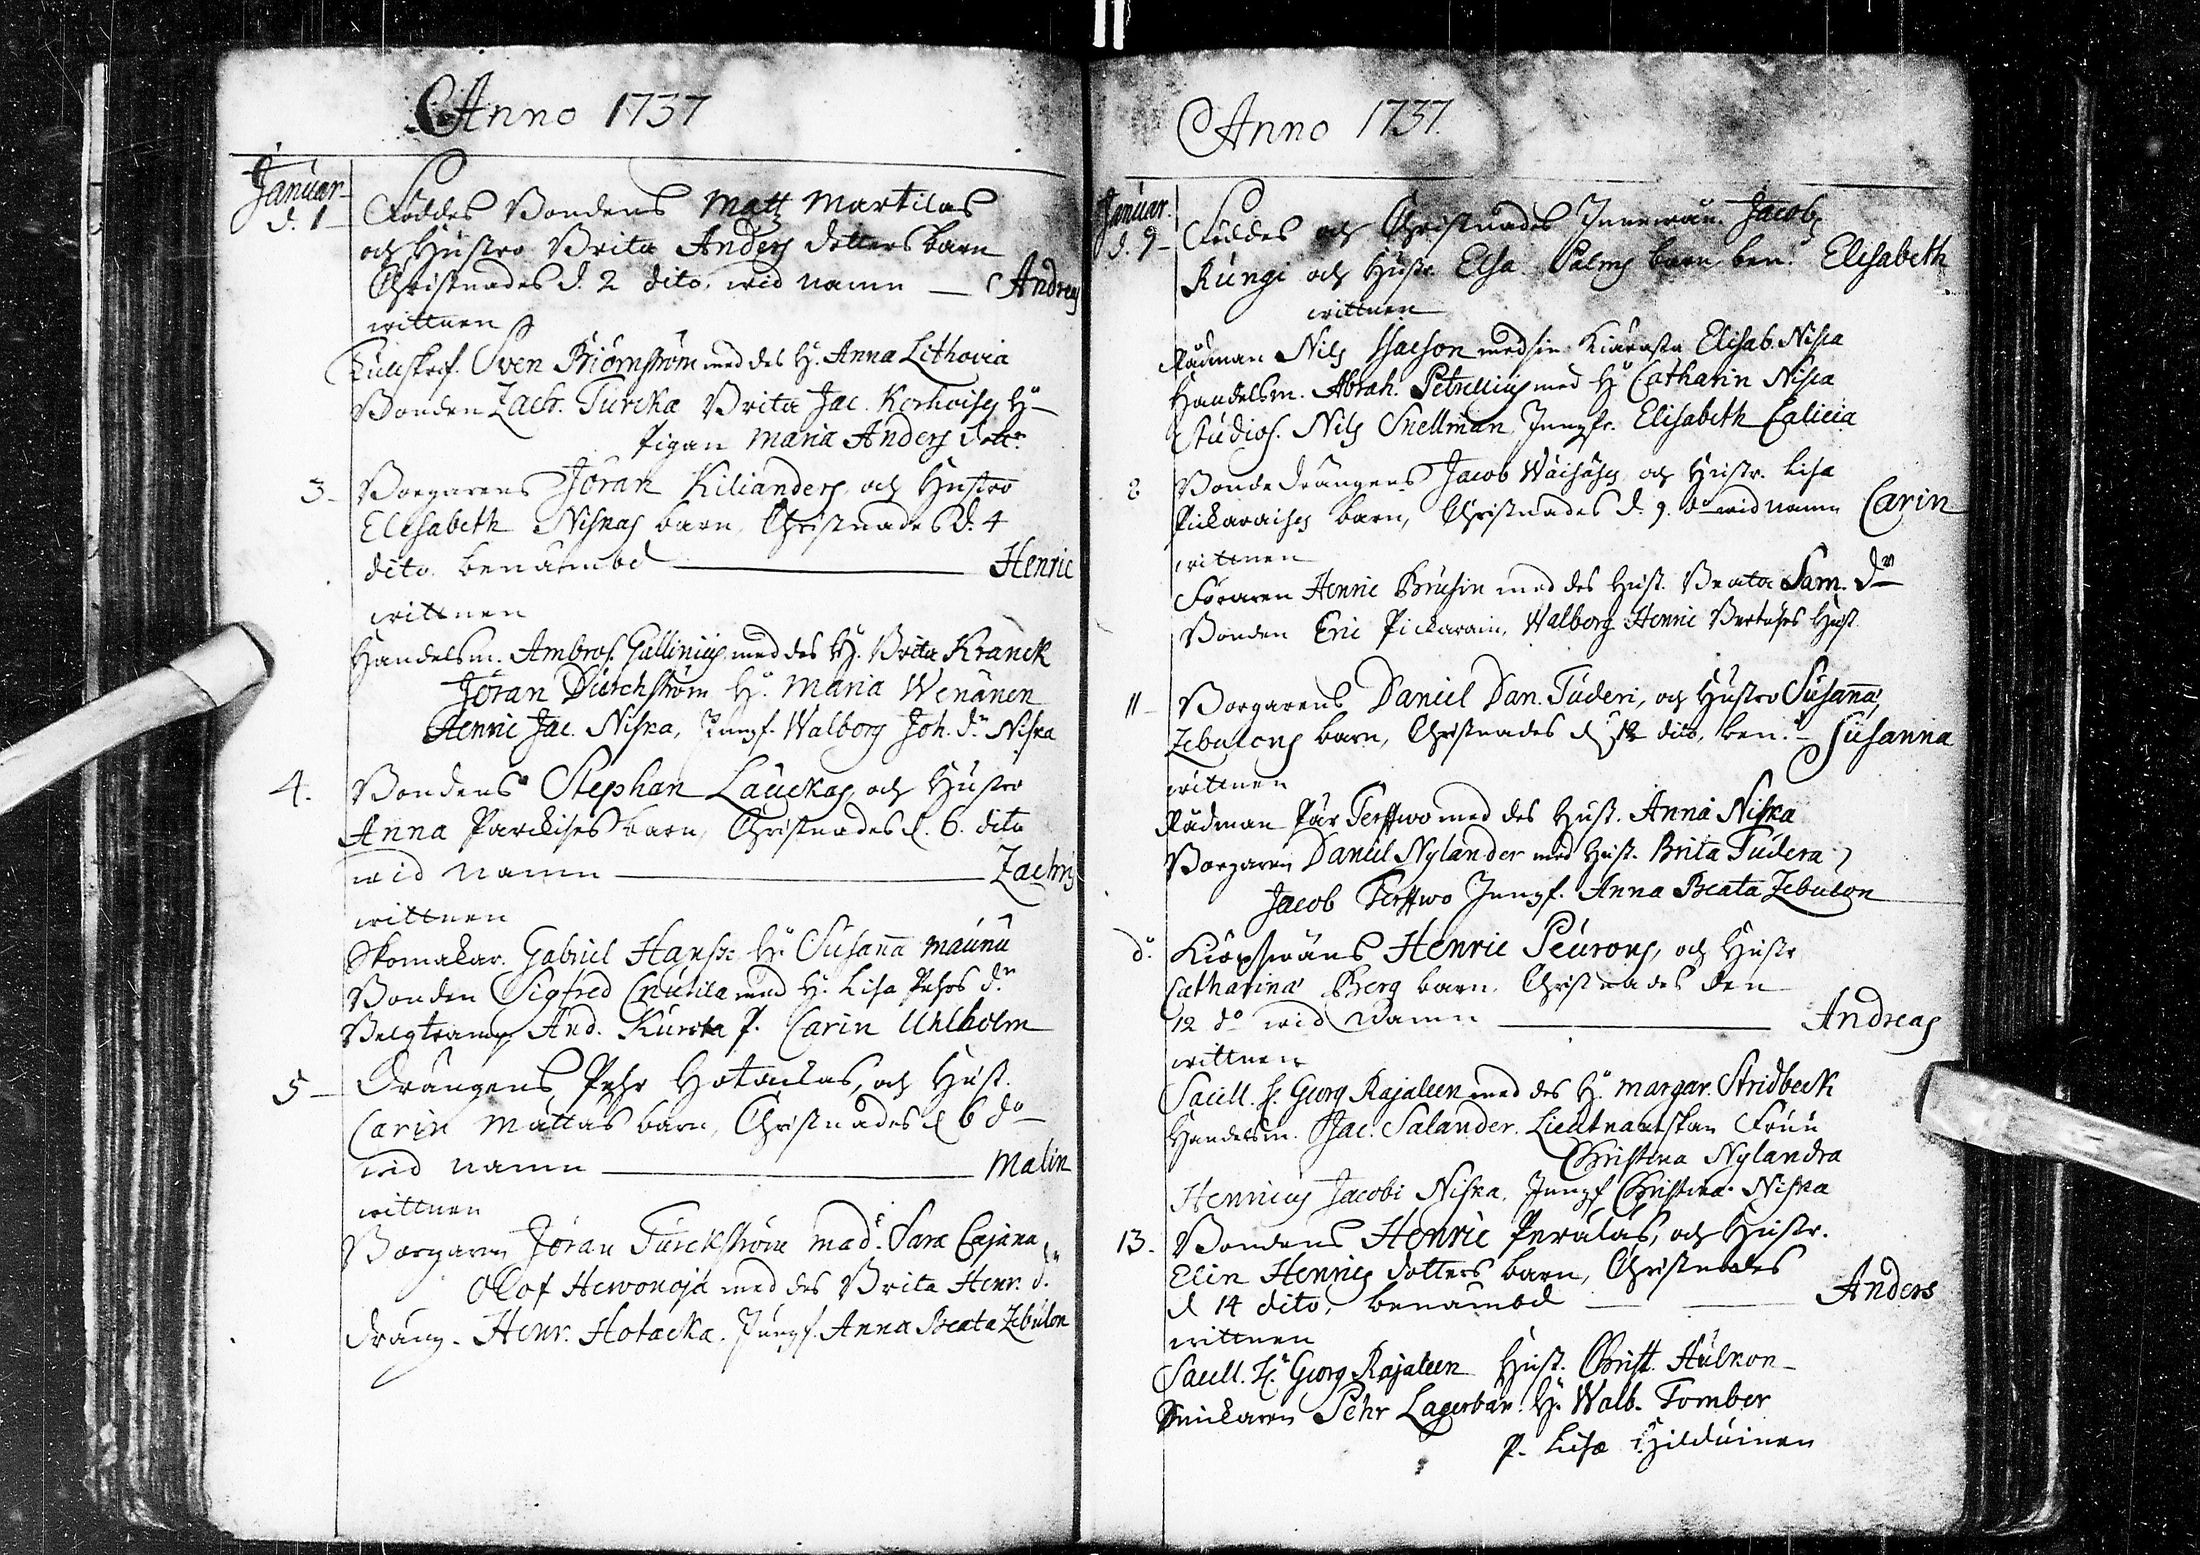 Anno 1737
Januar.
d. 1 Föddes Bondens Matz Martilas
och Hustro Brita Anders dotters barn
Christnades d. 2 dito, wid namn — Andreas
wittnen
Sven Biörnström med des H. Anna Lithovia
Bonden Zach. Turcka Brita Jac. Kerhoises H
Pigan Maria Anders dotter
3 Borgarens Jöran Kilianders och Hustro
Elisabeth Niskas barn, Christnades d. 4
dito benämbd — Henric
wittnen
Handelsm. Ambros. Gallinius med des H. Brita Kranck
Jöran Dierchström H. Maria Wenänen
Henric Jac. Niska, Jungf. Walborg Joh. dr Niska
4. Bondens Stephan Lauckas och Hustro
Anna Parckises barn, Christnades d. 6. dito
wid namn — Zachris
wittnen
Skomakar. Gabriel Hanss: H. Susanna Maunu
Bonden Sigfred Cnutila med H. Lisa Pehrs dr
And. Kurota P. Carin Uhlholm
5 Drängens Pehr Hotackas, och Hust.
Carin Mattas barn, Christnades d 6 do
wid namn — Malin
wittnen
Borgaren Jöran Turckström mad. Sara Cajana
Olof Hewonoja med des Brita Henr. dr
dräng. Henr. Hotacka. Jungf. Anna Beata Zebulon
Anno 1737
Januar.
d. 7 Föddes och Christnades Jacob
Rungi och Hustr. Elsa Palms barn ben. Elisabeth
wittnen
Rådman Nils Isacson med sin Kiäresta Elisab. Niska
Handelsm. Abrah. Petrellius med H. Catharin Niska
Studios. Nils Snellman, Jungfr. Elisabeth Calicia
8 Bonde drängens Jacob Wäisäses och Hustr. Lisa
Pickaraises barn, Christnades d. 9. do wid namn Carin
wittnen
Föraren Henric Brusin med des Hust. Beata Sam. dr
Bonden Eric Pickarain, Walborg Henric Hust.
11 Borgarens Daniel Dan. Tuderi, och Hustro Susanna
Zebulons barn, Christnades d 12 dito, ben. Susanna
wittnen
Rådman Pär Terffwo med des Hust. Anna Niska
Borgaren Daniel Nylander med Hust. Brita Tudera
Jacob Terffwo Jungf. Anna Beata Zebulon
do. Kiöpswäns Henric Peurons, och Hustr
Catharina Berg barn, Christnades den
12 do wid Namn — Andreas
wittnen
Sacell. H. Georg Rajaleen med des H. Margar. Stridbeck
Handelsm. Isac. Salander. Lieutnantskan Fruu
Christina Nylandra
Henricus Jacobi Niska. Jungf Christina Niska
13. Bondens Henric Perälas, och Hustr.
Elin Henrics dotters barn, Christnades
d 14 dito, benämbd — Anders
wittnen
Sacell. H. Georg Rajaleen Hust. Christ. Aulkon
Snickaren Pehr Lagerbär. H. Walb. Fomber
P. Lisa Hilduinen